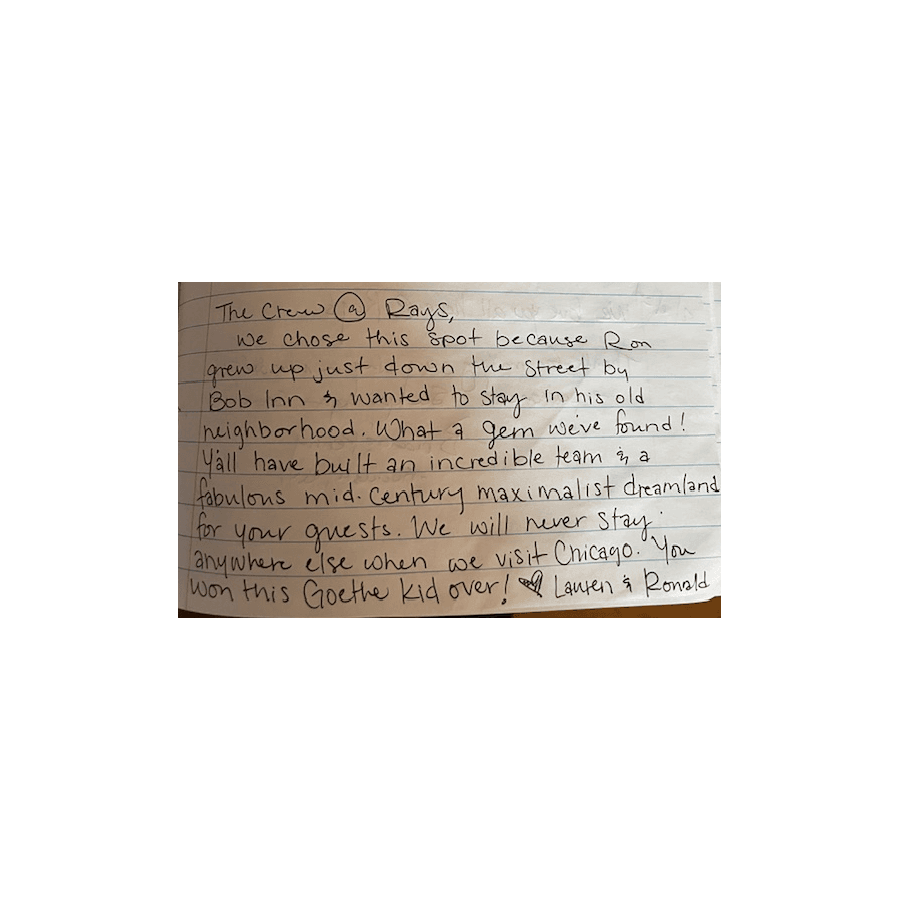 The Crew @ Rays,
We chose this spot because Ron
grew up just down the street by
Bob Inn & wanted to stay in his old
neighborhood. What a gem we've found!
Y'all have built an incredible team & a
fabulous mid-century maximalist dreamland
for your guests. We will never stay
anywhere else when we visit Chicago. You
won this Goethe kid over! ♥ Lauren & Ronald